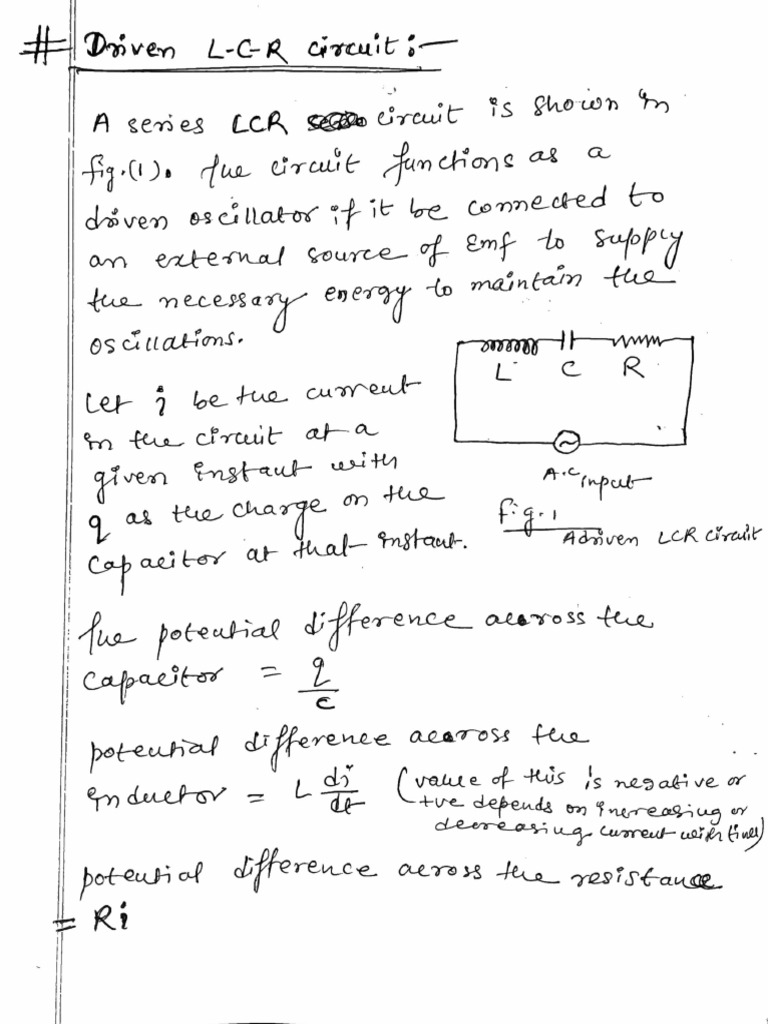 # Driven L-C-R circuit:-
A series LCR circuit is shown in
fig.(1). The circuit functions as a
driven oscillator if it be connected to
an external source of Emf to supply
the necessary energy to maintain the
oscillations.
L C R
A.C input
fig.1
A driven LCR circuit
Let i be the current
in the circuit at a
given instant with
q as the charge on the
capacitor at that instant.
The potential difference across the
capacitor = q/c
potential difference across the
inductor = L di/dt (value of this is negative or
+ve depends on increasing or
decreasing current with time)
potential difference across the resistance
= Ri